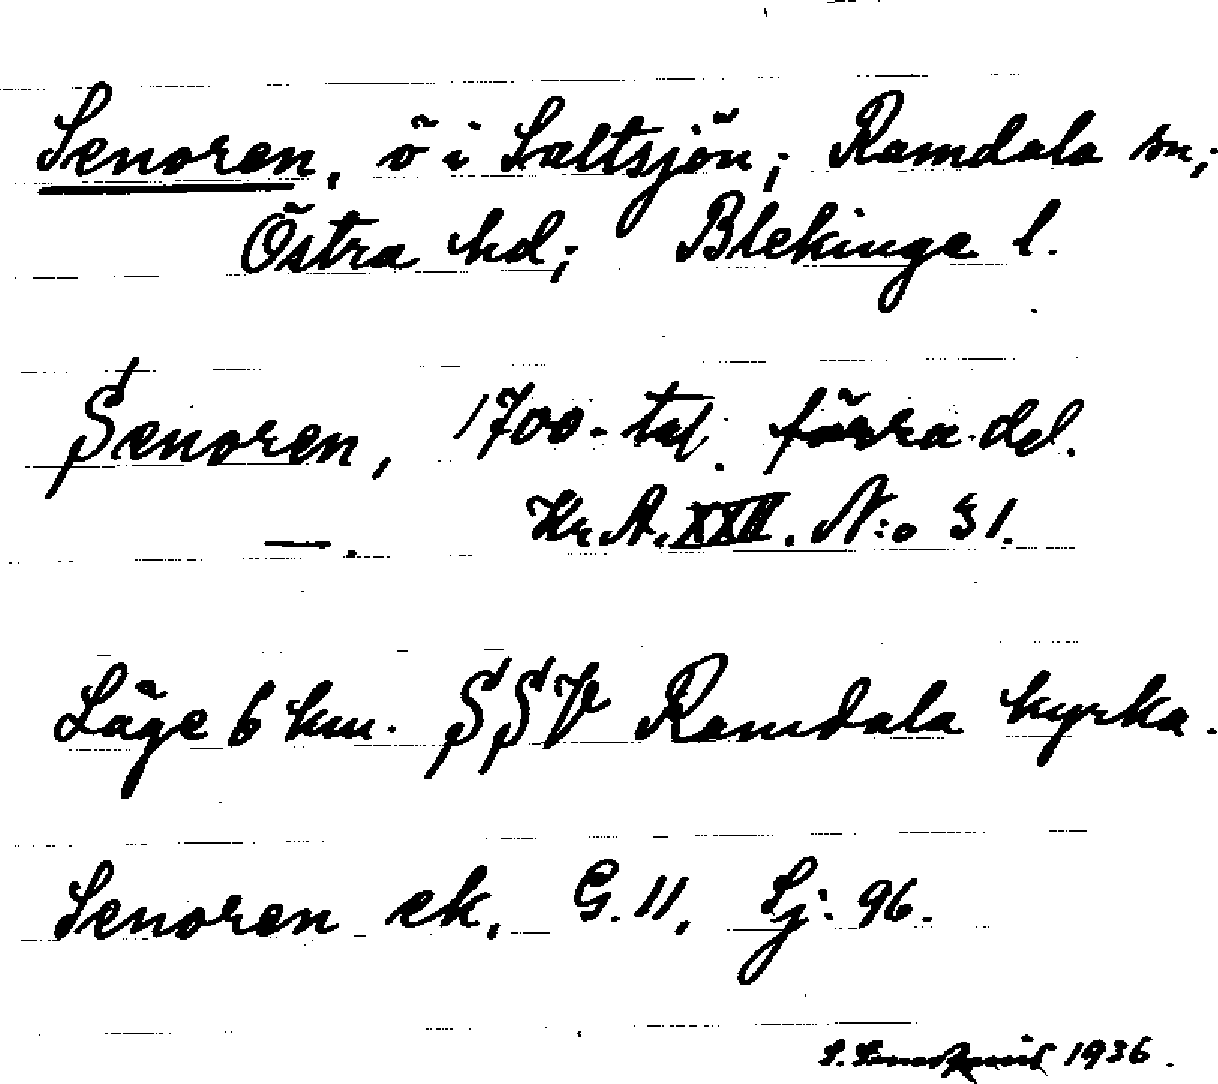 Senoren, ö i Saltsjön; Ramdala sn;
Östra hd; Blekinge l.
Senoren, 1700-tal. förra del.
Kr. A. XXII. N:o 31.
—.
Läge 6 km. SSV Ramdala kyrka.
Senoren ek. G. 11, Sj: 96.
1936.